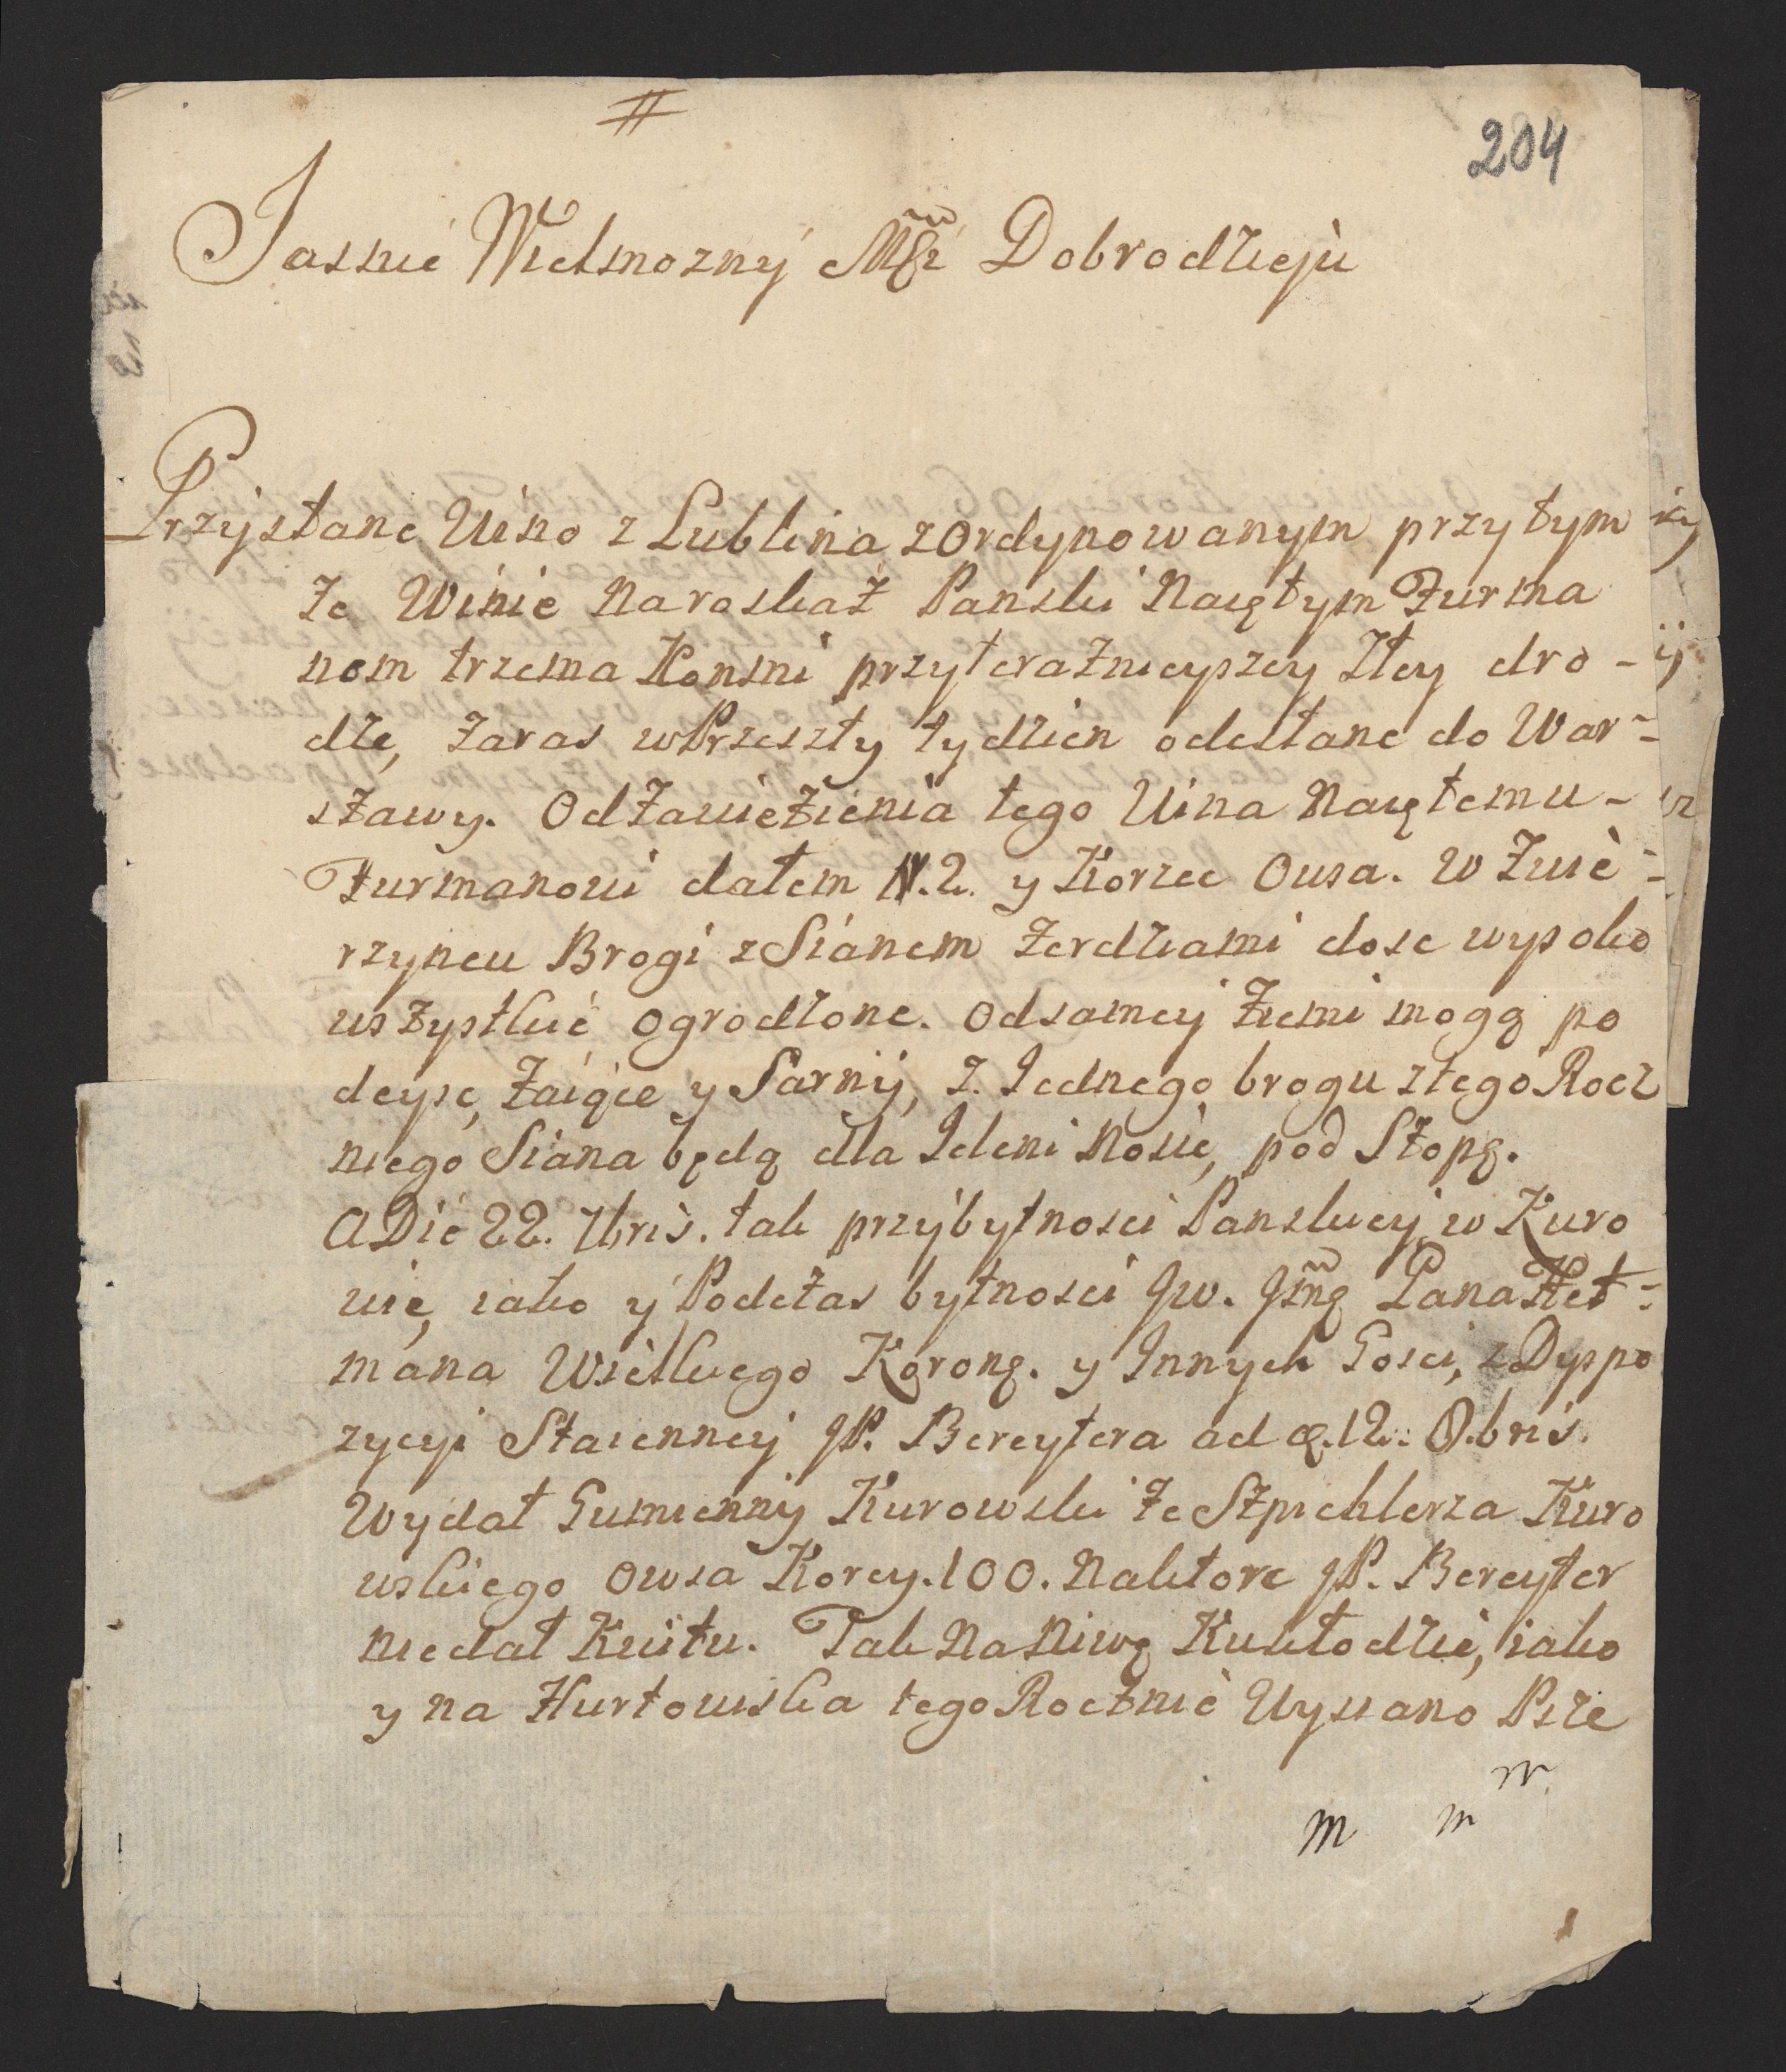 204
Jasnie Wielmozny Mści Dobrodzieju
Przysłane Uino z Lublina zordynowanym przytym
że Winie na roskaz Panski Naiętym Furma
nom trzema Konmi przyteraznieyszey złey dro -
dze, zaras wPrzeszły tydzien odesłane do War -
szawy. Od Zawiezienia tego Uina Naiętemu -
Furmanowi dałem N. 2. y Korzec Owsa. W Zwie -
rzyncu Brogi z Sianem żerdziami dosc wysoko
wszystkie ogrodzone. Od samey Ziemi mogą po
deysc zaiące y Sarny, z. Jednego brogu złego Rocz
niego Siana będą dla Jeleni Nosic, pod Szopę.
A Die 22. 7bris. tak przybytnosci Panskiey w Kuro
wie, iako y Podczas bytnosci Jw. Jmę Pana Het -
mana Wielkiego Koronę. y Innych Gosci, z Dyspo
zycyi Staienney JP. Bereytera ad 12. 8.bris.
Wydał Gumienny Kurowski ze Szpichlerza Kuro
wskiego owsa Korcy. 100. Naktore JP. Bereyter
niedał Kwitu. Tak Na Niwę Kukłodzie, iako
y na Hurtowiska tego Rocznie Wysiano Psze